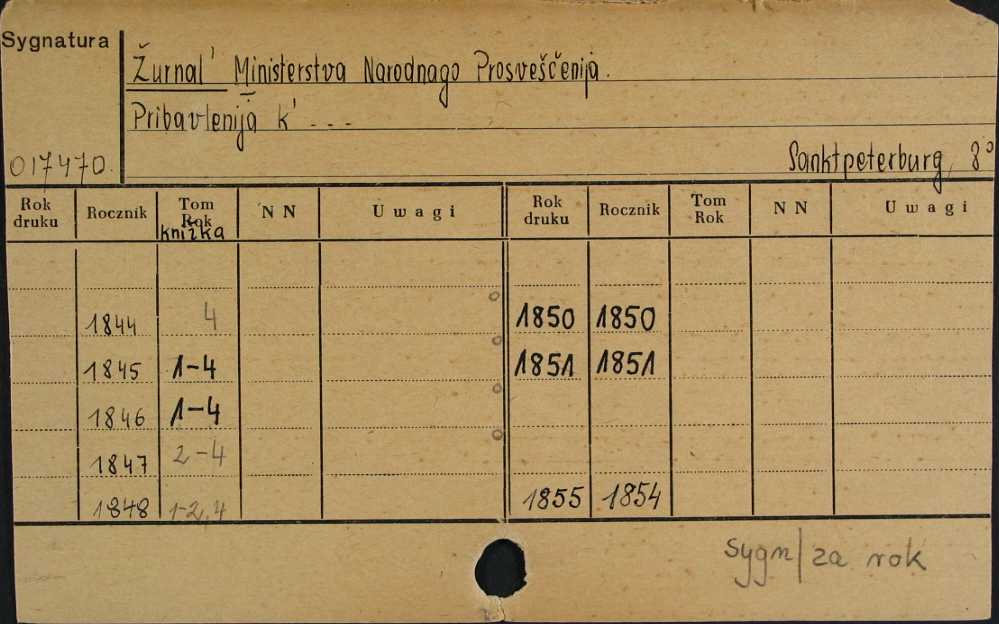 Sygnatura
Žurnal' Ministerstva Narodnago Prosveščenija.
Pribavlenija k' ...
017470.
Sanktpeterburg, 8°
Rok druku Rocznik Tom Rok knižka N N Uwagi Rok druku Rocznik Tom Rok N N Uwagi
1844 4 1850 1850
1845 1-4 1851 1851
1846 1-4
1847 2-4
1848 1-2,4 1855 1854
sygn/za rok